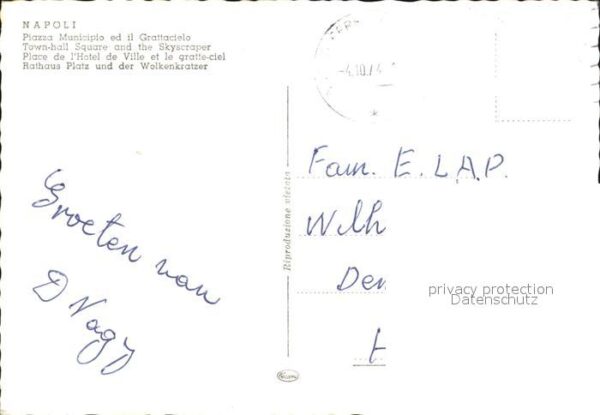 NAPOLI
Piazza Municipio ed il Grattacielo
Town-hall Square and the Skyscraper
Place de l'Hotel de Ville et le gratte-ciel
Rathaus Platz und der Wolkenkratzer
-4.10.74
Fam. E. L.A.P.
Wilh
Den
Groeten van
D Nagy
Riproduzione vietata
privacy protection
Datenschutz